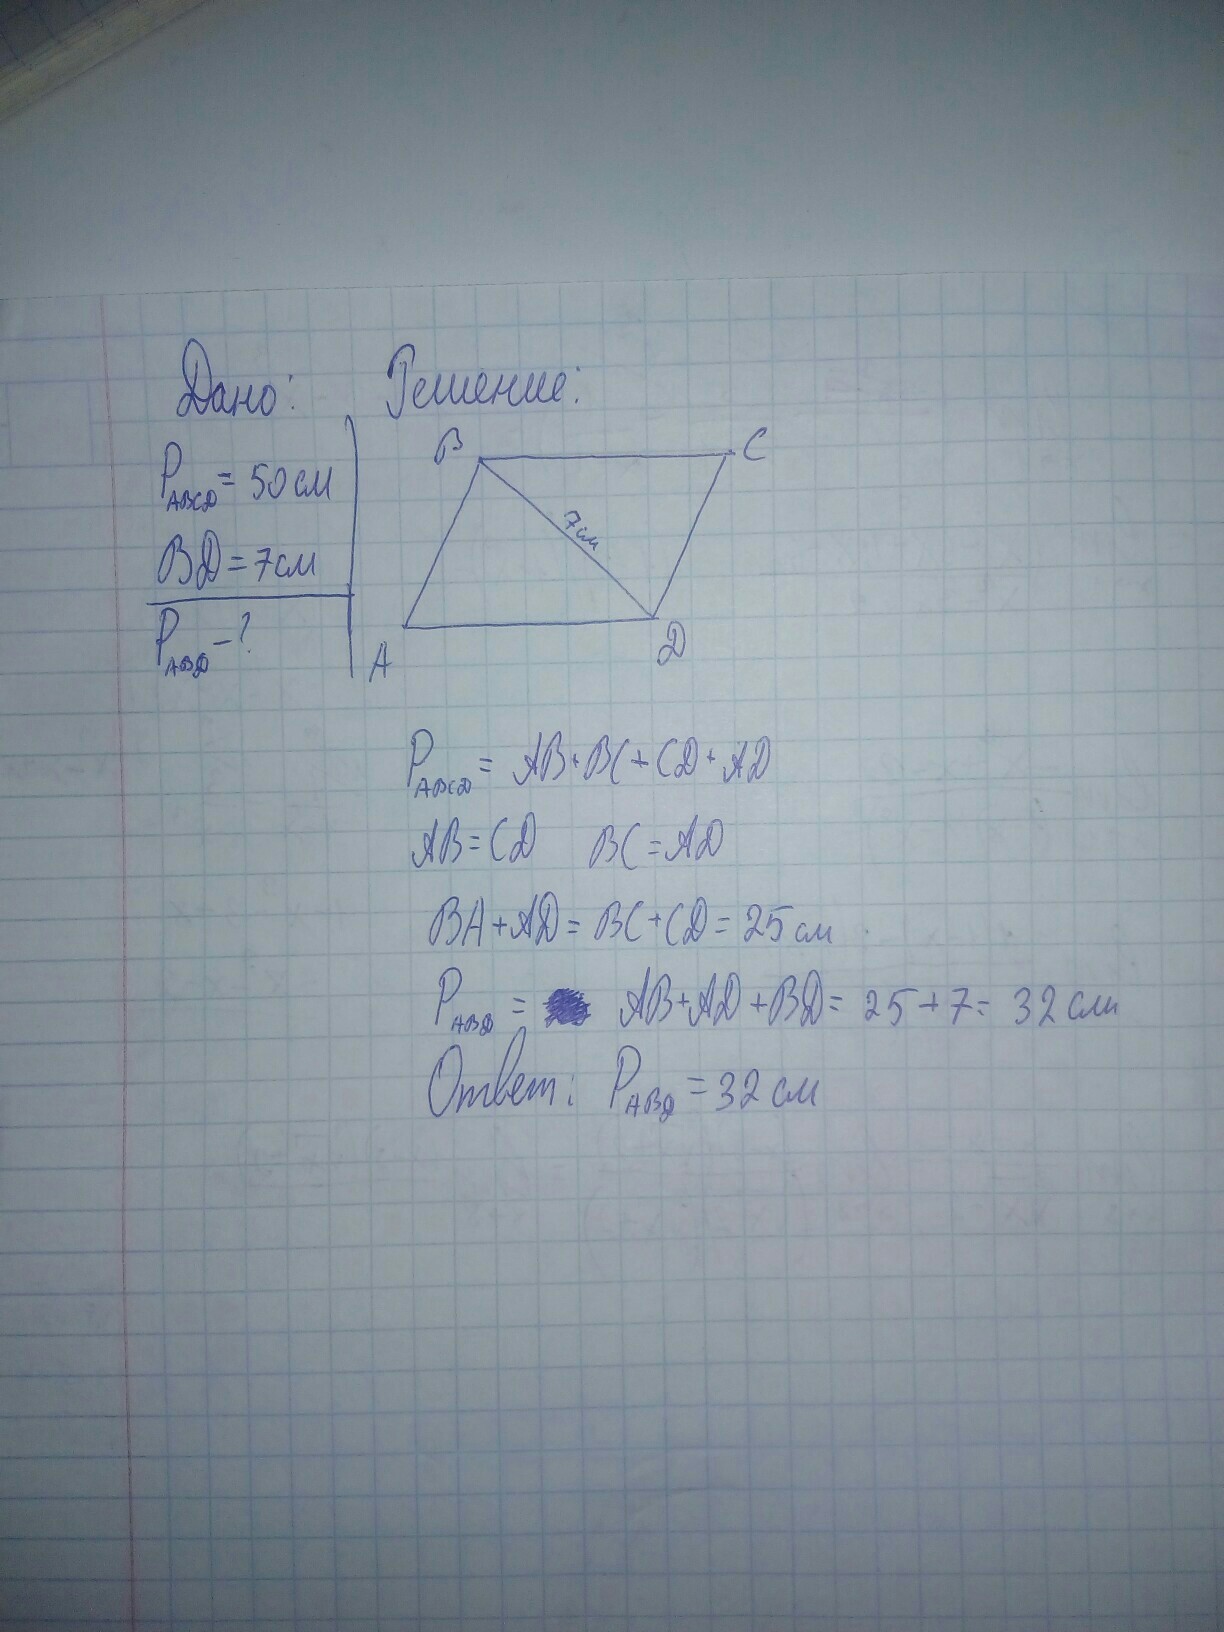 Дано:
Решение:
P ABCD = 50 см
BD = 7 см
P ABD - ?
B
C
7 см
A
D
P ABCD = AB + BC + CD + AD
AB = CD BC = AD
BA + AD = BC + CD = 25 см
P ABD = AB + AD + BD = 25 + 7 = 32 см
Ответ: P ABD = 32 см